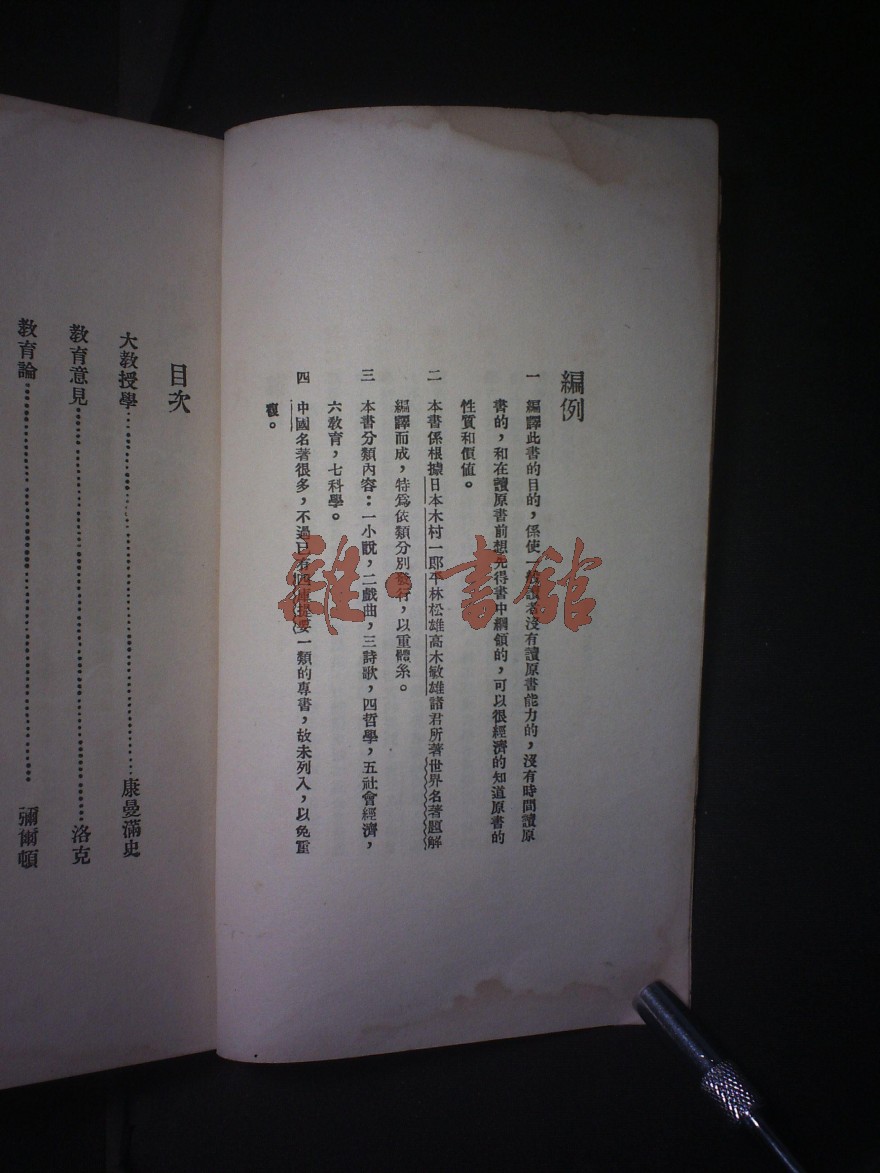 編例
一　編譯此書的目的，係使一般讀者沒有讀原書能力的，沒有時間讀原
書的，和在讀原書前想先得書中綱領的，可以很經濟的知道原書的
性質和價值。
二　本書係根據日本木村一郎平林松雄高木敏雄諸君所著世界名著題解
編譯而成，特爲依類分別發行，以重體系。
三　本書分類內容：一小說，二戲曲，三詩歌，四哲學，五社會經濟，
六教育，七科學。
四　中國名著很多，不過已有四庫提要一類的專書，故未列入，以免重
複。
目次
大教授學……………………康曼滿史
教育意見……………………洛克
教育論……………………彌爾頓
雜·書館